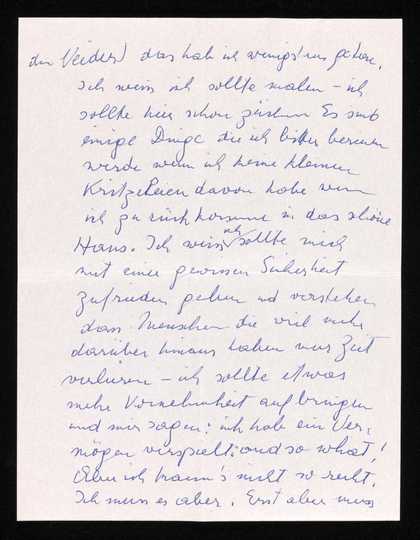 das hab ich wenigstens getan.
Ich weiss ich sollte malen – ich
sollte hier schon Es sind
einige Dinge die ich bitter bereuen
werde wenn ich keine kleinen
Kritzeleien davon habe wenn
ich zurückkomme in das schöne
Haus. Ich weiss ich sollte mich
mit einer grossen Sicherheit
zufrieden geben und verstehen
dass Menschen die viel mehr
darüber hinaus haben nur Zeit
verlieren – ich sollte etwas
mehr Vornehmheit aufbringen
und mir sagen: ich hab ein Ver-
mögen verspielt: and so what!
Aber ich kann's nicht so recht.
Ich muss es aber. Erst aber muss